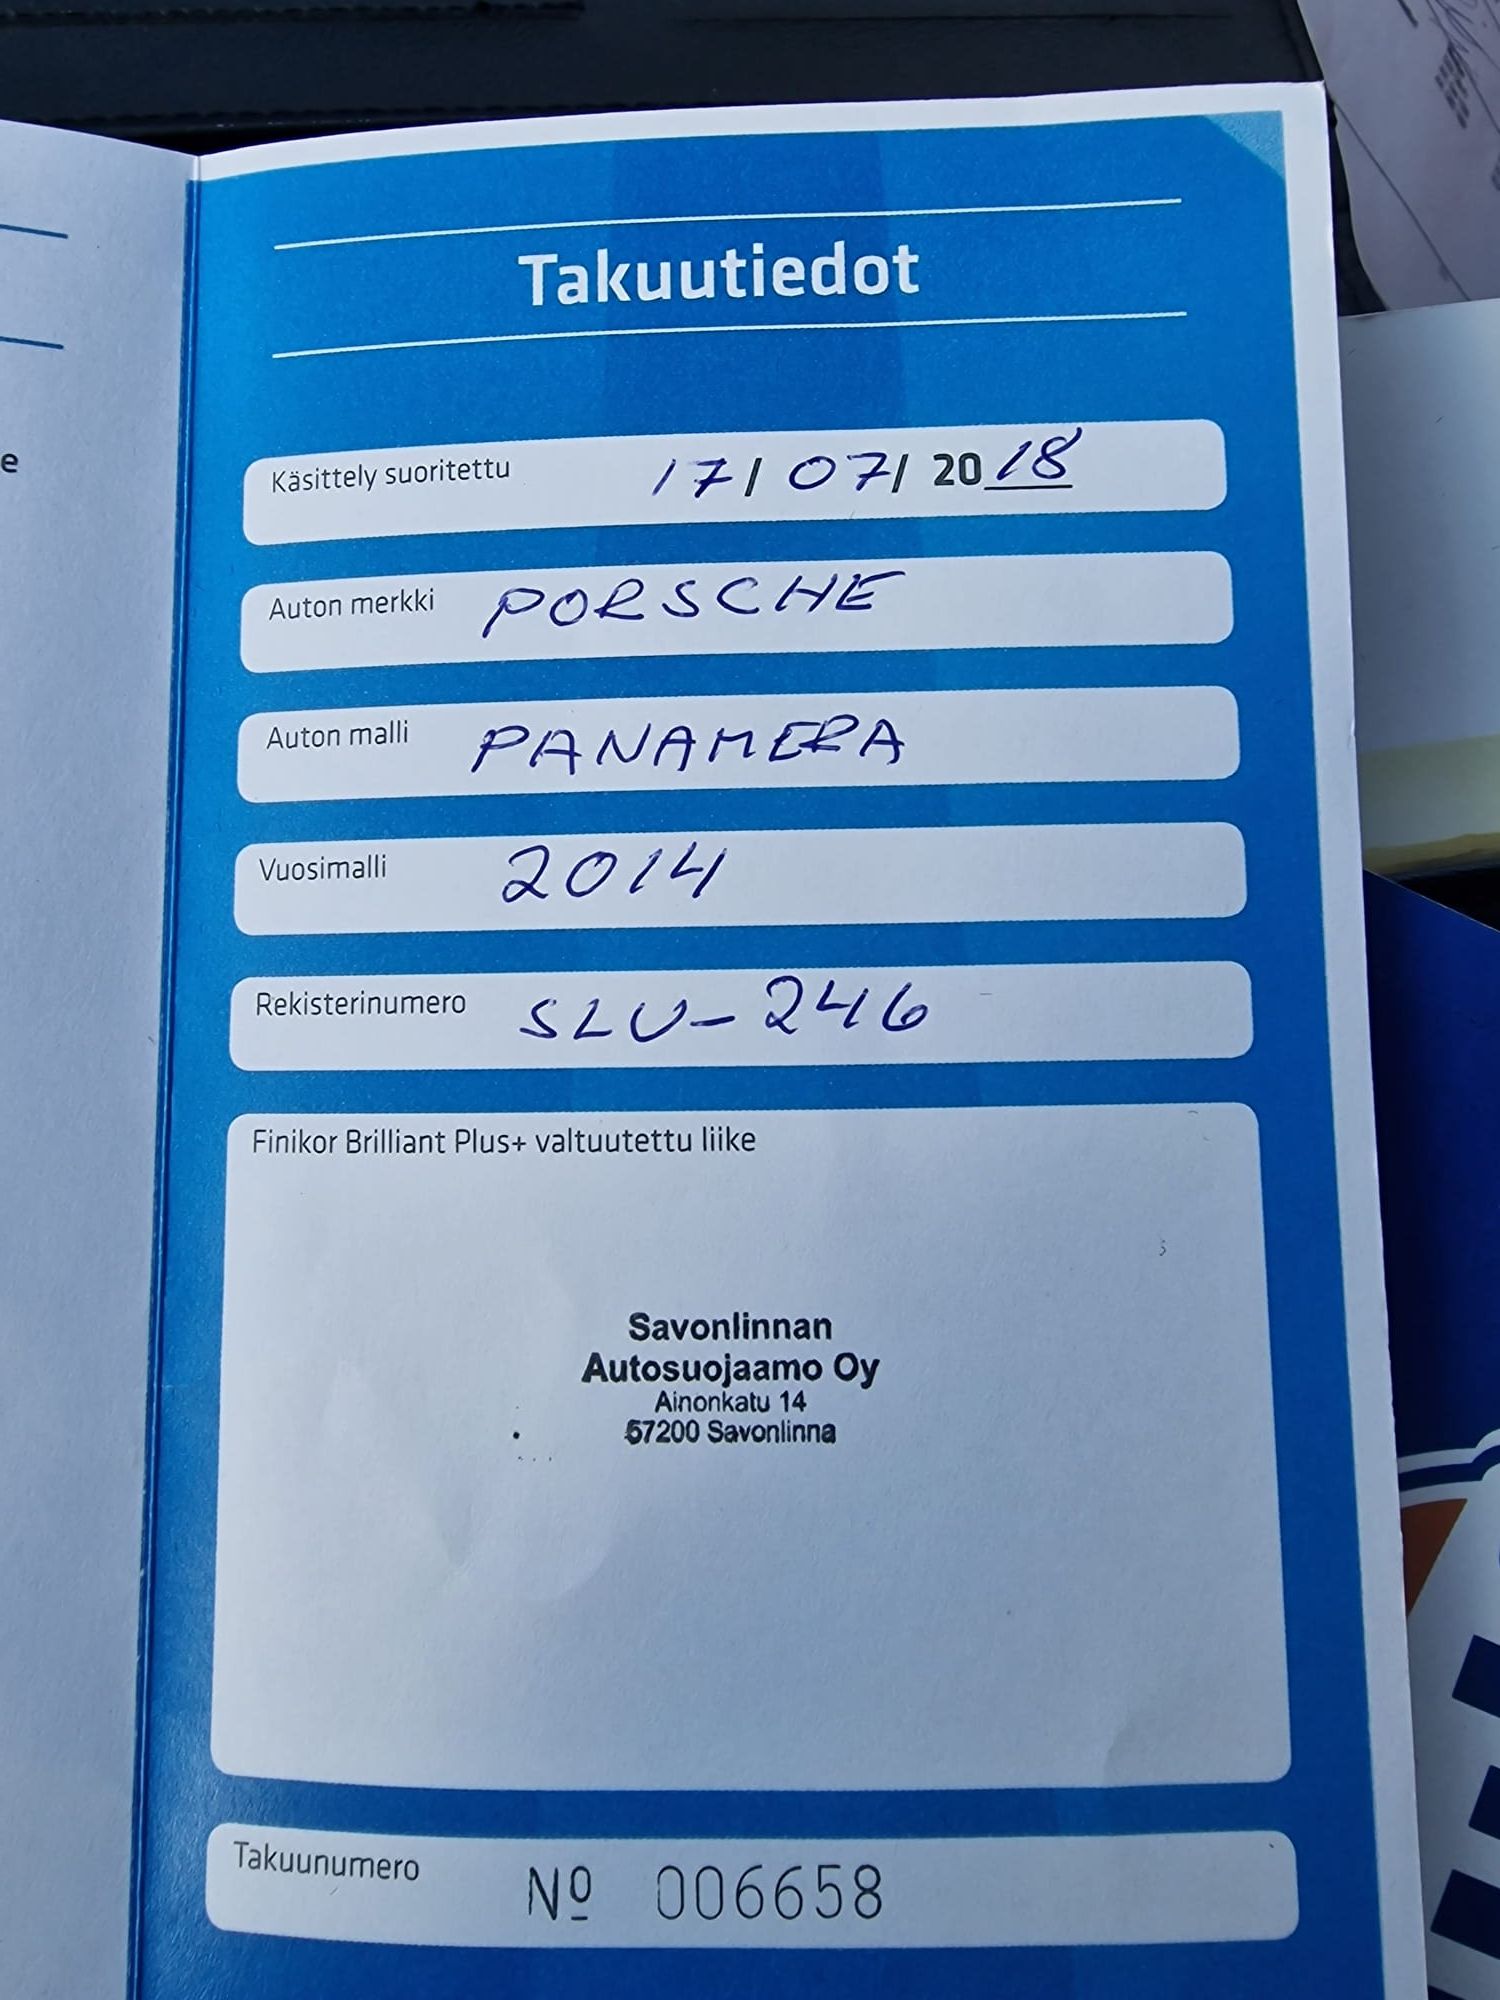 e
Takuutiedot
Käsittely suoritettu 17/ 07/ 2018
Auton merkki PORSCHE
Auton malli PANAMERA
Vuosimalli 2014
Rekisterinumero SLU-246
Finikor Brilliant Plus+ valtuutettu liike
Savonlinnan
Autosuojaamo Oy
Ainonkatu 14
57200 Savonlinna
Takuunumero Nº 006658